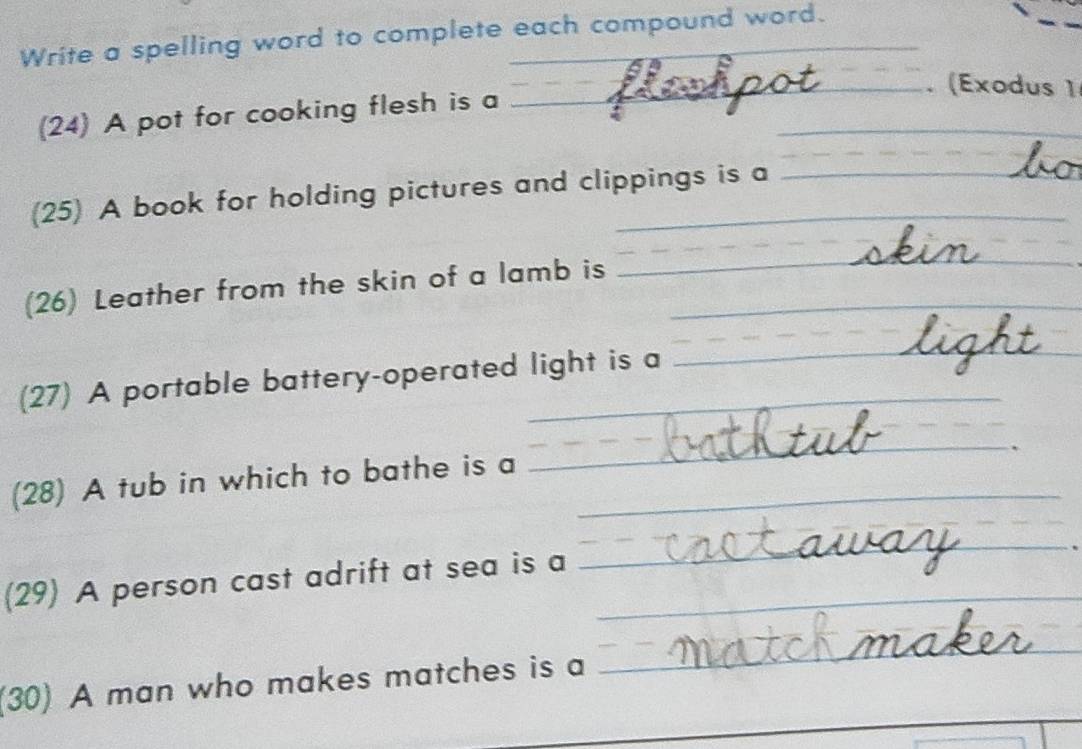 Write a spelling word to complete each compound word.
(24) A pot for cooking flesh is a fleshpot. (Exodus 1
(25) A book for holding pictures and clippings is a bo
(26) Leather from the skin of a lamb is skin.
(27) A portable battery-operated light is a light
(28) A tub in which to bathe is a bathtub.
(29) A person cast adrift at sea is a castaway.
(30) A man who makes matches is a matchmaker